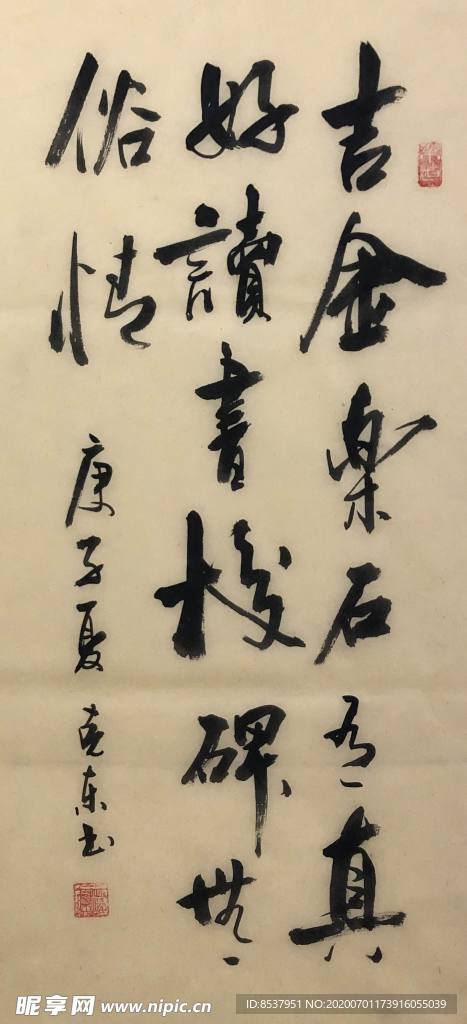 吉金樂石有真
好讀書校碑無
俗情
庚子夏 克東书
昵享网 www.nipic.cn
ID:8537951 NO:20200701173916055039